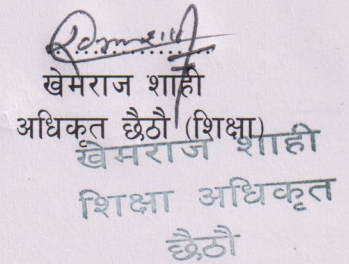 खेमराज शाही
अधिकृत छैठौ (शिक्षा)
खेमराज शाही
शिक्षा अधिकृत
छैठौ